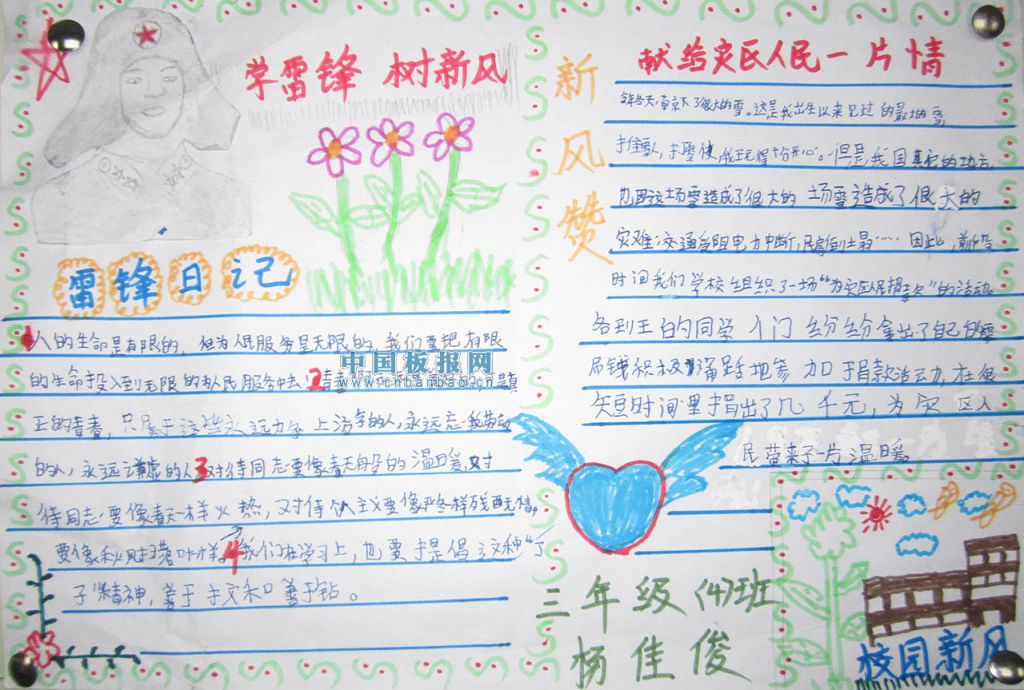 学雷锋 树新风
雷锋日记
1人的生命是有限的,但为人民服务是无限的,我们要把有限
的生命投入到无限的为人民服务中去 2青
正的青春,只属于这些永远力争上游的人,永远忘我劳动
的人,永远谦虚的人 3对待同志要像春天般的温暖,对
待同志要像春天一样火热,对待个人主义要像严冬一样残酷无情。
要像秋风扫落叶一样 4我们在学习上,也要提倡这种“丁
子”精神,善于挤和善于钻。
中国板报网
www.cnbanbao.cn
新风赞
献给灾区人民一片情
今年冬天,南京下了很大的雪。这是我出生以来见过的最大的雪,
堆雪人,打雪使我玩得十分开心。但是我国其它的地方,
也因这场雪造成了很大的 场雪造成了很大的
灾难:交通受阻电力中断,民房倒塌……因此,前段
时间我们学校组织了一场“为灾区人民捐款”的活动。
各到王的同学们纷纷拿出了自己的零
用钱积极踊跃地参加捐款活动,在很
短时间里捐出了几千元,为灾区人
民带来了一片温暖
三年级(4)班
杨佳俊
校园新风